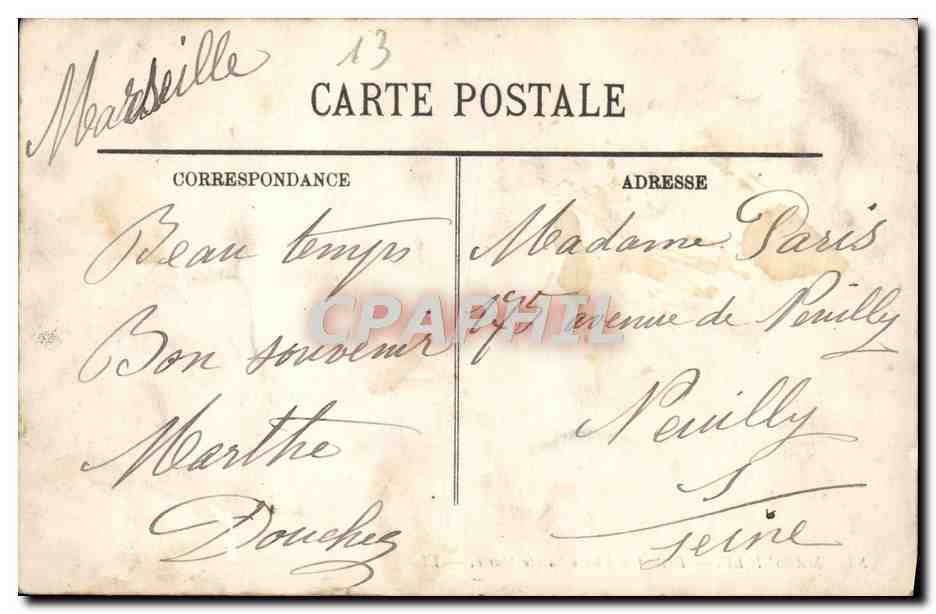 Marseille
13
CARTE POSTALE
CORRESPONDANCE
Beau temps
Bon souvenir
Marthe
ADRESSE
Madame Paris
avenue de Neuilly
Neuilly
s/
Seine
CPAPHIL